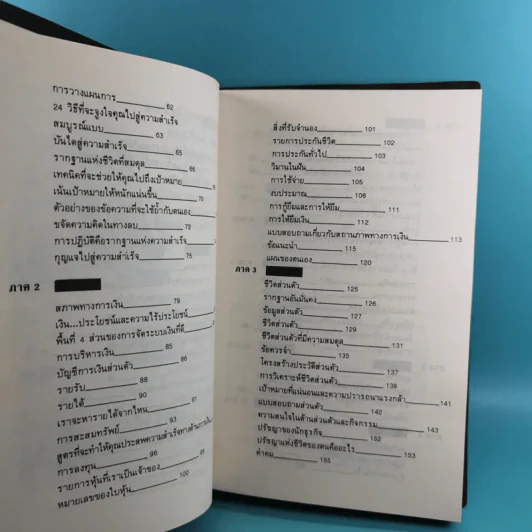 การวางแผนการ 62
24 วิธีที่จะจูงใจคุณไปสู่ความสำเร็จ
สมบูรณ์แบบ 63
บันไดสู่ความสำเร็จ 65
รากฐานแห่งชีวิตที่สมดุล 66
เทคนิคที่จะช่วยให้คุณไปถึงเป้าหมาย
เน้นเป้าหมายให้หนักแน่นขึ้น 70
ตัวอย่างของข้อความที่จะใช้ย้ำกับตนเอง
ขจัดความคิดในทางลบ 72
การปฏิบัติคือรากฐานแห่งความสำเร็จ
กุญแจไปสู่ความสำเร็จ 75
ภาค 2
สภาพทางการเงิน 79
เงิน...ประโยชน์และความไร้ประโยชน์
พื้นที่ 4 ส่วนของการจัดระบบเงินที่ดี
การบริหารเงิน 85
บัญชีการเงินส่วนตัว 86
รายรับ 88
รายได้ 90
เราจะหารายได้จากไหน 91
การสะสมทรัพย์ 93
สูตรที่จะทำให้คุณประสพความสำเร็จทางด้านการเงิน
การลงทุน 96
รายการหุ้นที่เราเป็นเจ้าของ
หมายเลขของใบหุ้น 100
สิ่งที่รับจำนอง 101
รายการประกันชีวิต 102
การประกันทั่วไป 103
วิมานในฝัน 104
การใช้จ่าย 105
งบประมาณ 108
การกู้ยืมและการให้ยืม 111
การให้ยืมเงิน 112
แบบสอบถามเกี่ยวกับสถานภาพทางการเงิน 113
ข้อแนะนำ 115
แผนของตนเอง 120
ภาค 3
ชีวิตส่วนตัว 125
รากฐานอันมั่นคง 126
ข้อมูลส่วนตัว 127
ชีวิตส่วนตัว 129
ชีวิตส่วนตัวที่มีความสมดุล 131
ข้อควรจำ 135
โครงสร้างประวัติส่วนตัว 137
การวิเคราะห์ชีวิตส่วนตัว 138
เป้าหมายที่แน่นอนและความปรารถนาแรงกล้า 141
แบบสอบถามส่วนตัว 142
ความสนใจในด้านส่วนตัวและกิจกรรม 143
ปรัชญาของนักธุรกิจ 152
ปรัชญาแห่งชีวิตของตนคืออะไร 153
คำคม 155